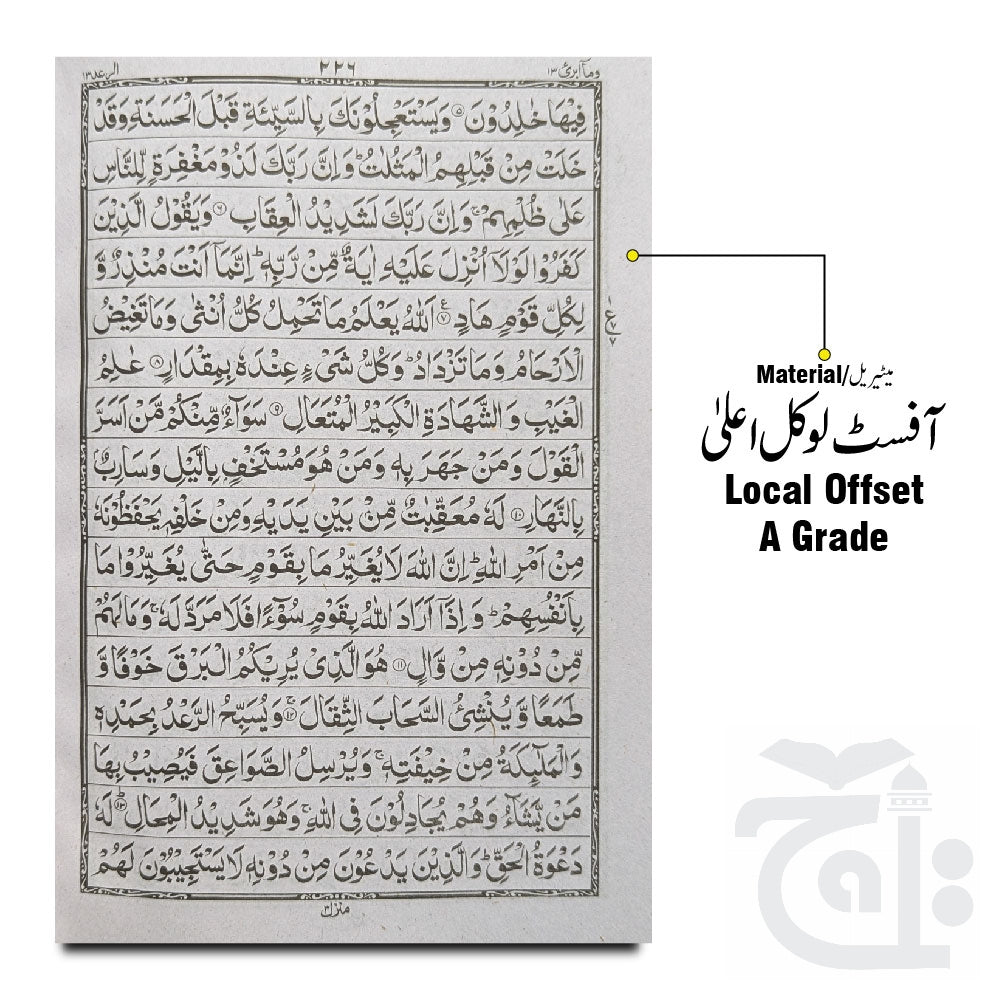 وما ابرئ ۱۳
۲۲۶
الرعد ۱۳
فِيْهَا خٰلِدُوْنَ ۵ وَيَسْتَعْجِلُوْنَكَ بِالسَّيِّئَةِ قَبْلَ الْحَسَنَةِ وَقَدْ
خَلَتْ مِنْ قَبْلِهِمُ الْمَثُلٰتُ ؕ وَاِنَّ رَبَّكَ لَذُوْ مَغْفِرَةٍ لِّلنَّاسِ
عَلٰى ظُلْمِهِمْ ۚ وَاِنَّ رَبَّكَ لَشَدِيْدُ الْعِقَابِ ۶ وَيَقُوْلُ الَّذِيْنَ
كَفَرُوْا لَوْلَاۤ اُنْزِلَ عَلَيْهِ اٰيَةٌ مِّنْ رَّبِّهٖ ؕ اِنَّمَاۤ اَنْتَ مُنْذِرٌ وَّ
لِكُلِّ قَوْمٍ هَادٍ ۷ ع اَللّٰهُ يَعْلَمُ مَا تَحْمِلُ كُلُّ اُنْثٰى وَمَا تَغِيْضُ
الْاَرْحَامُ وَمَا تَزْدَادُ ؕ وَكُلُّ شَىْءٍ عِنْدَهٗ بِمِقْدَارٍ ۸ عٰلِمُ
الْغَيْبِ وَالشَّهَادَةِ الْكَبِيْرُ الْمُتَعَالِ ۹ سَوَآءٌ مِّنْكُمْ مَّنْ اَسَرَّ
الْقَوْلَ وَمَنْ جَهَرَ بِهٖ وَمَنْ هُوَ مُسْتَخْفٍۭ بِالَّيْلِ وَسَارِبٌۢ
بِالنَّهَارِ ۱۰ لَهٗ مُعَقِّبٰتٌ مِّنْۢ بَيْنِ يَدَيْهِ وَمِنْ خَلْفِهٖ يَحْفَظُوْنَهٗ
مِنْ اَمْرِ اللّٰهِ ؕ اِنَّ اللّٰهَ لَا يُغَيِّرُ مَا بِقَوْمٍ حَتّٰى يُغَيِّرُوْا مَا
بِاَنْفُسِهِمْ ؕ وَاِذَاۤ اَرَادَ اللّٰهُ بِقَوْمٍ سُوْٓءًا فَلَا مَرَدَّ لَهٗ ۚ وَمَا لَهُمْ
مِّنْ دُوْنِهٖ مِنْ وَّالٍ ۱۱ هُوَ الَّذِىْ يُرِيْكُمُ الْبَرْقَ خَوْفًا وَّ
طَمَعًا وَّيُنْشِئُ السَّحَابَ الثِّقَالَ ۱۲ ۚ وَيُسَبِّحُ الرَّعْدُ بِحَمْدِهٖ
وَالْمَلٰٓئِكَةُ مِنْ خِيْفَتِهٖ ۚ وَيُرْسِلُ الصَّوَاعِقَ فَيُصِيْبُ بِهَا
مَنْ يَّشَآءُ وَهُمْ يُجَادِلُوْنَ فِى اللّٰهِ ۚ وَهُوَ شَدِيْدُ الْمِحَالِ ۱۳ ؕ لَهٗ
دَعْوَةُ الْحَقِّ ؕ وَالَّذِيْنَ يَدْعُوْنَ مِنْ دُوْنِهٖ لَا يَسْتَجِيْبُوْنَ لَهُمْ
منزل ۳
Material/میٹیریل
آفسٹ لوکل اعلیٰ
Local Offset
A Grade
تاج